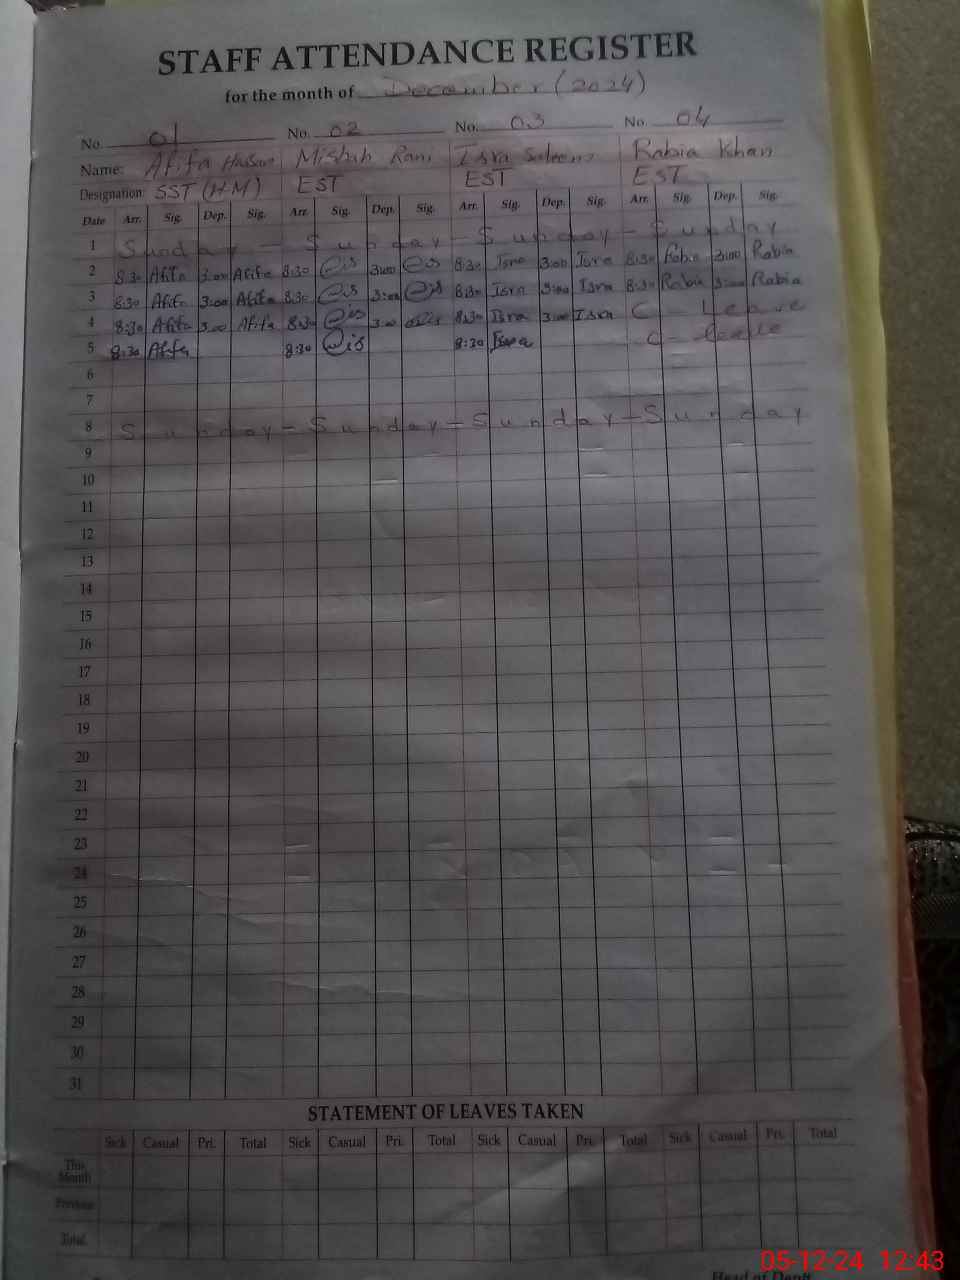 STAFF ATTENDANCE REGISTER
for the month of December (2024)
No. 01 No. 02 No. 03 No. 04
Name: Afifa Hasan Misbah Rani Isra Saleem Rabia Khan
Designation: SST (HM) EST EST EST
Date Arr. Sig. Dep. Sig. Arr. Sig. Dep. Sig. Arr. Sig. Dep. Sig. Arr. Sig. Dep. Sig.
1 Sunday - Sunday - Sunday - Sunday
2 8:30 Afifa 3:00 Afifa 8:30 3:00 8:30 Isra 3:00 Isra 8:30 Rabia 3:00 Rabia
3 8:30 Afifa 3:00 Afifa 8:30 3:00 8:30 Isra 3:00 Isra 8:30 Rabia 3:00 Rabia
4 8:30 Afifa 3:00 Afifa 8:30 3:00 8:30 Isra 3:00 Isra C - Leave
5 8:30 Afifa 8:30 8:30 Isra C - Leave
6
7
8 Sunday - Sunday - Sunday - Sunday
9
10
11
12
13
14
15
16
17
18
19
20
21
22
23
24
25
26
27
28
29
30
31
STATEMENT OF LEAVES TAKEN
Sick Casual Pri. Total Sick Casual Pri. Total Sick Casual Pri. Total Sick Casual Pri. Total
This Month
Previous
Total
05-12-24 12:43
Head of Deptt